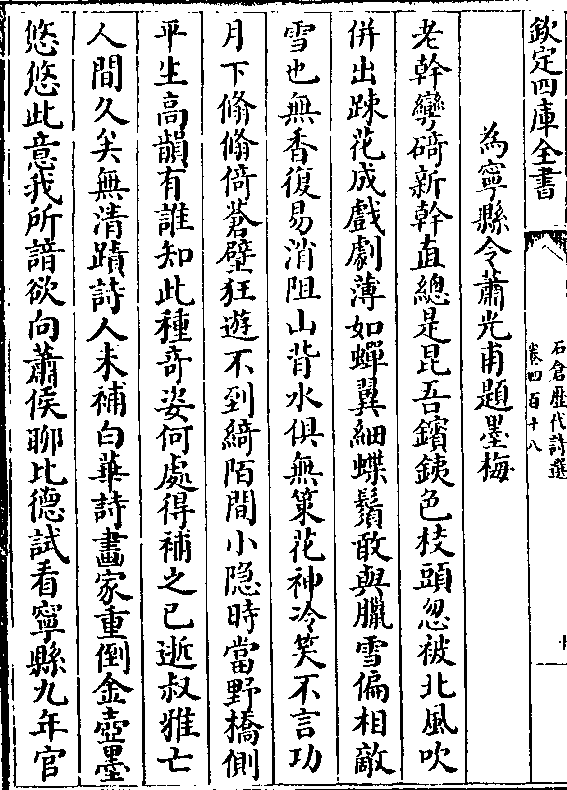 欽定四庫全書
石倉歷代詩選
卷四百十八
為寧縣令蕭光甫題墨梅
老幹孿碕新幹直總是昆吾鑌銕色枝頭忽被北風吹
併出踈花成戲劇薄如蟬翼細蝶鬚敢與臘雪偏相敵
雪也無香復易消阻山背水俱無策花神冷笑不言功
月下翛翛倚蒼壁狂遊不到綺陌間小隐時當野橋側
平生高韻有誰知此種奇姿何處得補之已逝叔雅亡
人間久矣無清蹟詩人未補白華詩畫家重倒金壺墨
悠悠此意我所諳欲向蕭侯聊比德試看寧縣九年官